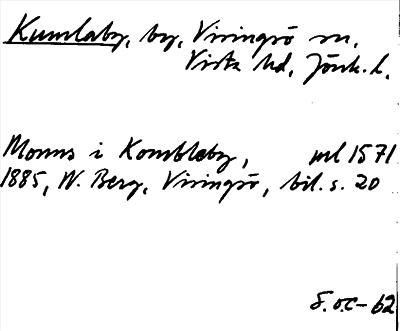 Kumlaby, by, Visingsö sn.
Vista hd, Jönk. l.
Monns i Kombleby, ml 1571
1885, W. Berg, Visingsö, bil. s. 20
S.O.C-62